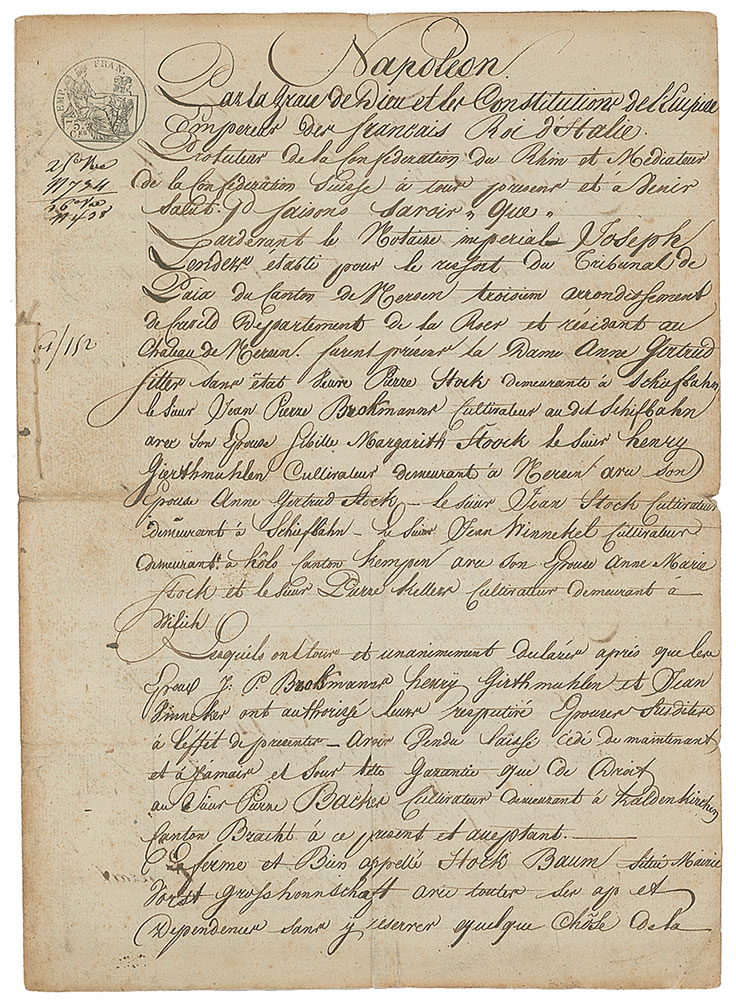 Napoléon.
Par la grace de Dieu et les Constitutions de l'Empire
Empereur des francais Roi d'Italie.
Protecteur de la Confédération du Rhin et Médiateur
de la Confédération Suisse à tous presens et à Venir
Salut. faisons savoir, que,
Pardevant le Notaire imperial Joseph
Lenders établi pour le ressort du Tribunal de
Paix du Canton de Nersen troisiem arrondissement
de Creveld Departement de la Roer et résidant au
Chateau de Nersen. furent presens la Dame Anne Gertrud
sitter sans état Veuve Pierre Stock demeurante à Schiefbahn
le Sieur Jean Pierre Brokmanns Cultivateur au dit Schifbahn
avec son Epouse Sibille Margarith Stock le Sieur henry
Gierthmuhlen Cultivateur demeurant à Nersen avec son
Epouse Anne Gertrud Stock – le Sieur Jean Stock Cultivateur
demeurant à Schiefbahn – le Sieur Jean Vinnekel Cultivateur
demeurant à Canton Kempen avec son Epouse Anne Marie
Stock et le Sieur Pierre Keller Cultivateur demeurant à
Lesquels ont tous et unanimement declarés après que les
Epoux J. P. Brokmanns henry Girthmuhlen et Jean
Vinneker ont authorissé leurs respectivé Epouses Susdites
à l'effét de presenter – Avoir Vendu laissé cédé de maintenant
et à jamais et sous telle Garantie que de Droit
au Sieur Pierre Backes Cultivateur demeurant à Kaldenkirchen
Canton Bracht à ce present et acceptant.
La ferme et Bien appellé Stock Baum situé Mairie
Vorst Grosshonnschaft avec toutes ses ap et
Dependences sans y reserver quelque Chôse de la
EMP. FRAN.
N 734
N 408
152